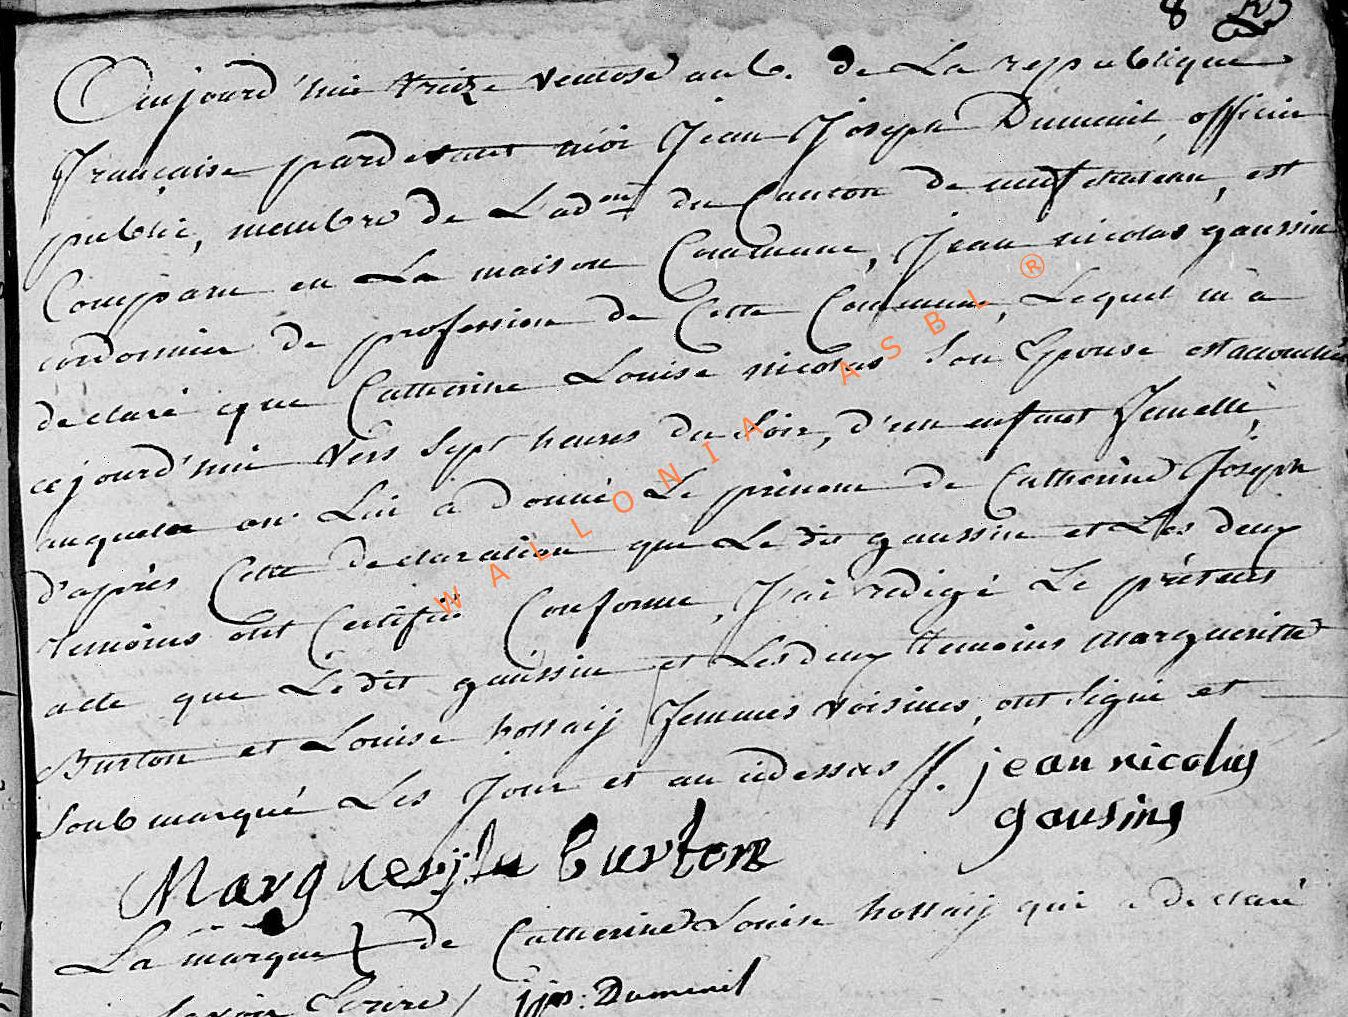 8
Aujourd'hui treize ventose an 6. de La republique
française pardevant moi Jean Joseph Dumenil, officier
public, membre de L'adon du Canton de neufchateau, est
Comparu en La maison Commune, Jean nicolas gaussin
cordonnier de profession de Cette Commune, Lequel m'a
declaré que Catherine Louise nicolas son Epouse est accouchée
cejourd'hui vers sept heures du soir, d'un enfant femelle,
auquel on Lui a donné Le prénom de Catherine Joseph
d'après Cette declaration que Le dit gaussin et Les deux
temoins ont Certifié Conforme, J'ai redigé Le présent
acte que Ledit gaussin et Les deux temoins margueritte
Burton et Louise hossaij femmes voisines, ont signé et
soubmarqué Les Jour et an cidessus //. jean nicolas
gausins
Margueryte burton
La marque de Catherine Louise hossaij qui a declaré
savoir Ecrire / jjos: Dumenil
WALLONIA ASBL ®